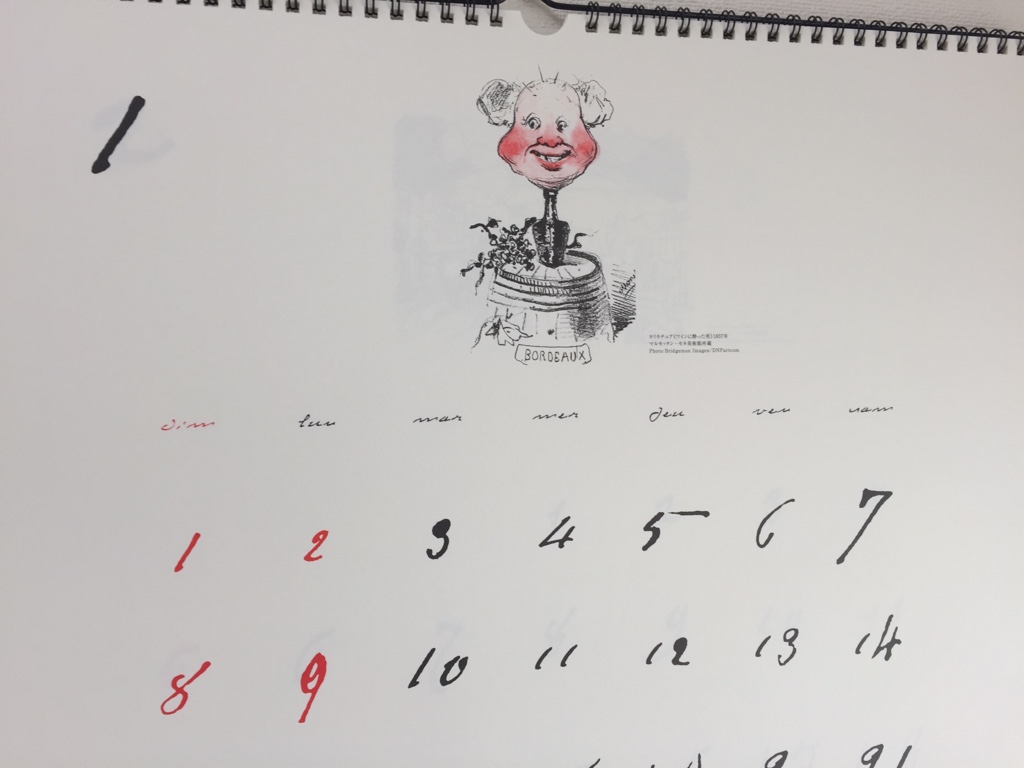 1
BORDEAUX
カリカチュア(ワインに酔った男)1857年
マルモッタン・モネ美術館所蔵
Photo:Bridgeman Images/DNPartcom
dim lun mar mer jeu ven sam
1 2 3 4 5 6 7
8 9 10 11 12 13 14